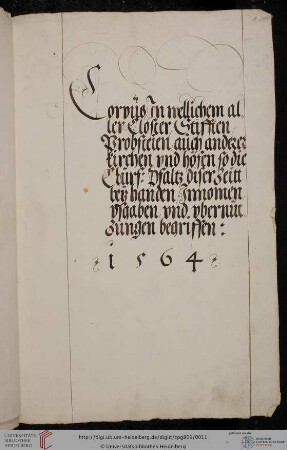 Corpus In wellichem al
ler Closter Stifften
Probsteien auch anderer
kirchen vnd höfen so die
Churf: Pfaltz diser Zeitt
bey handen Innomen
vsgaben vnd vbernut
Zungen begriffen:
1564
http://digi.ub.uni-heidelberg.de/diglit/cpg809/0011
© Universitätsbibliothek Heidelberg
UNIVERSITÄTS-
BIBLIOTHEK
HEIDELBERG